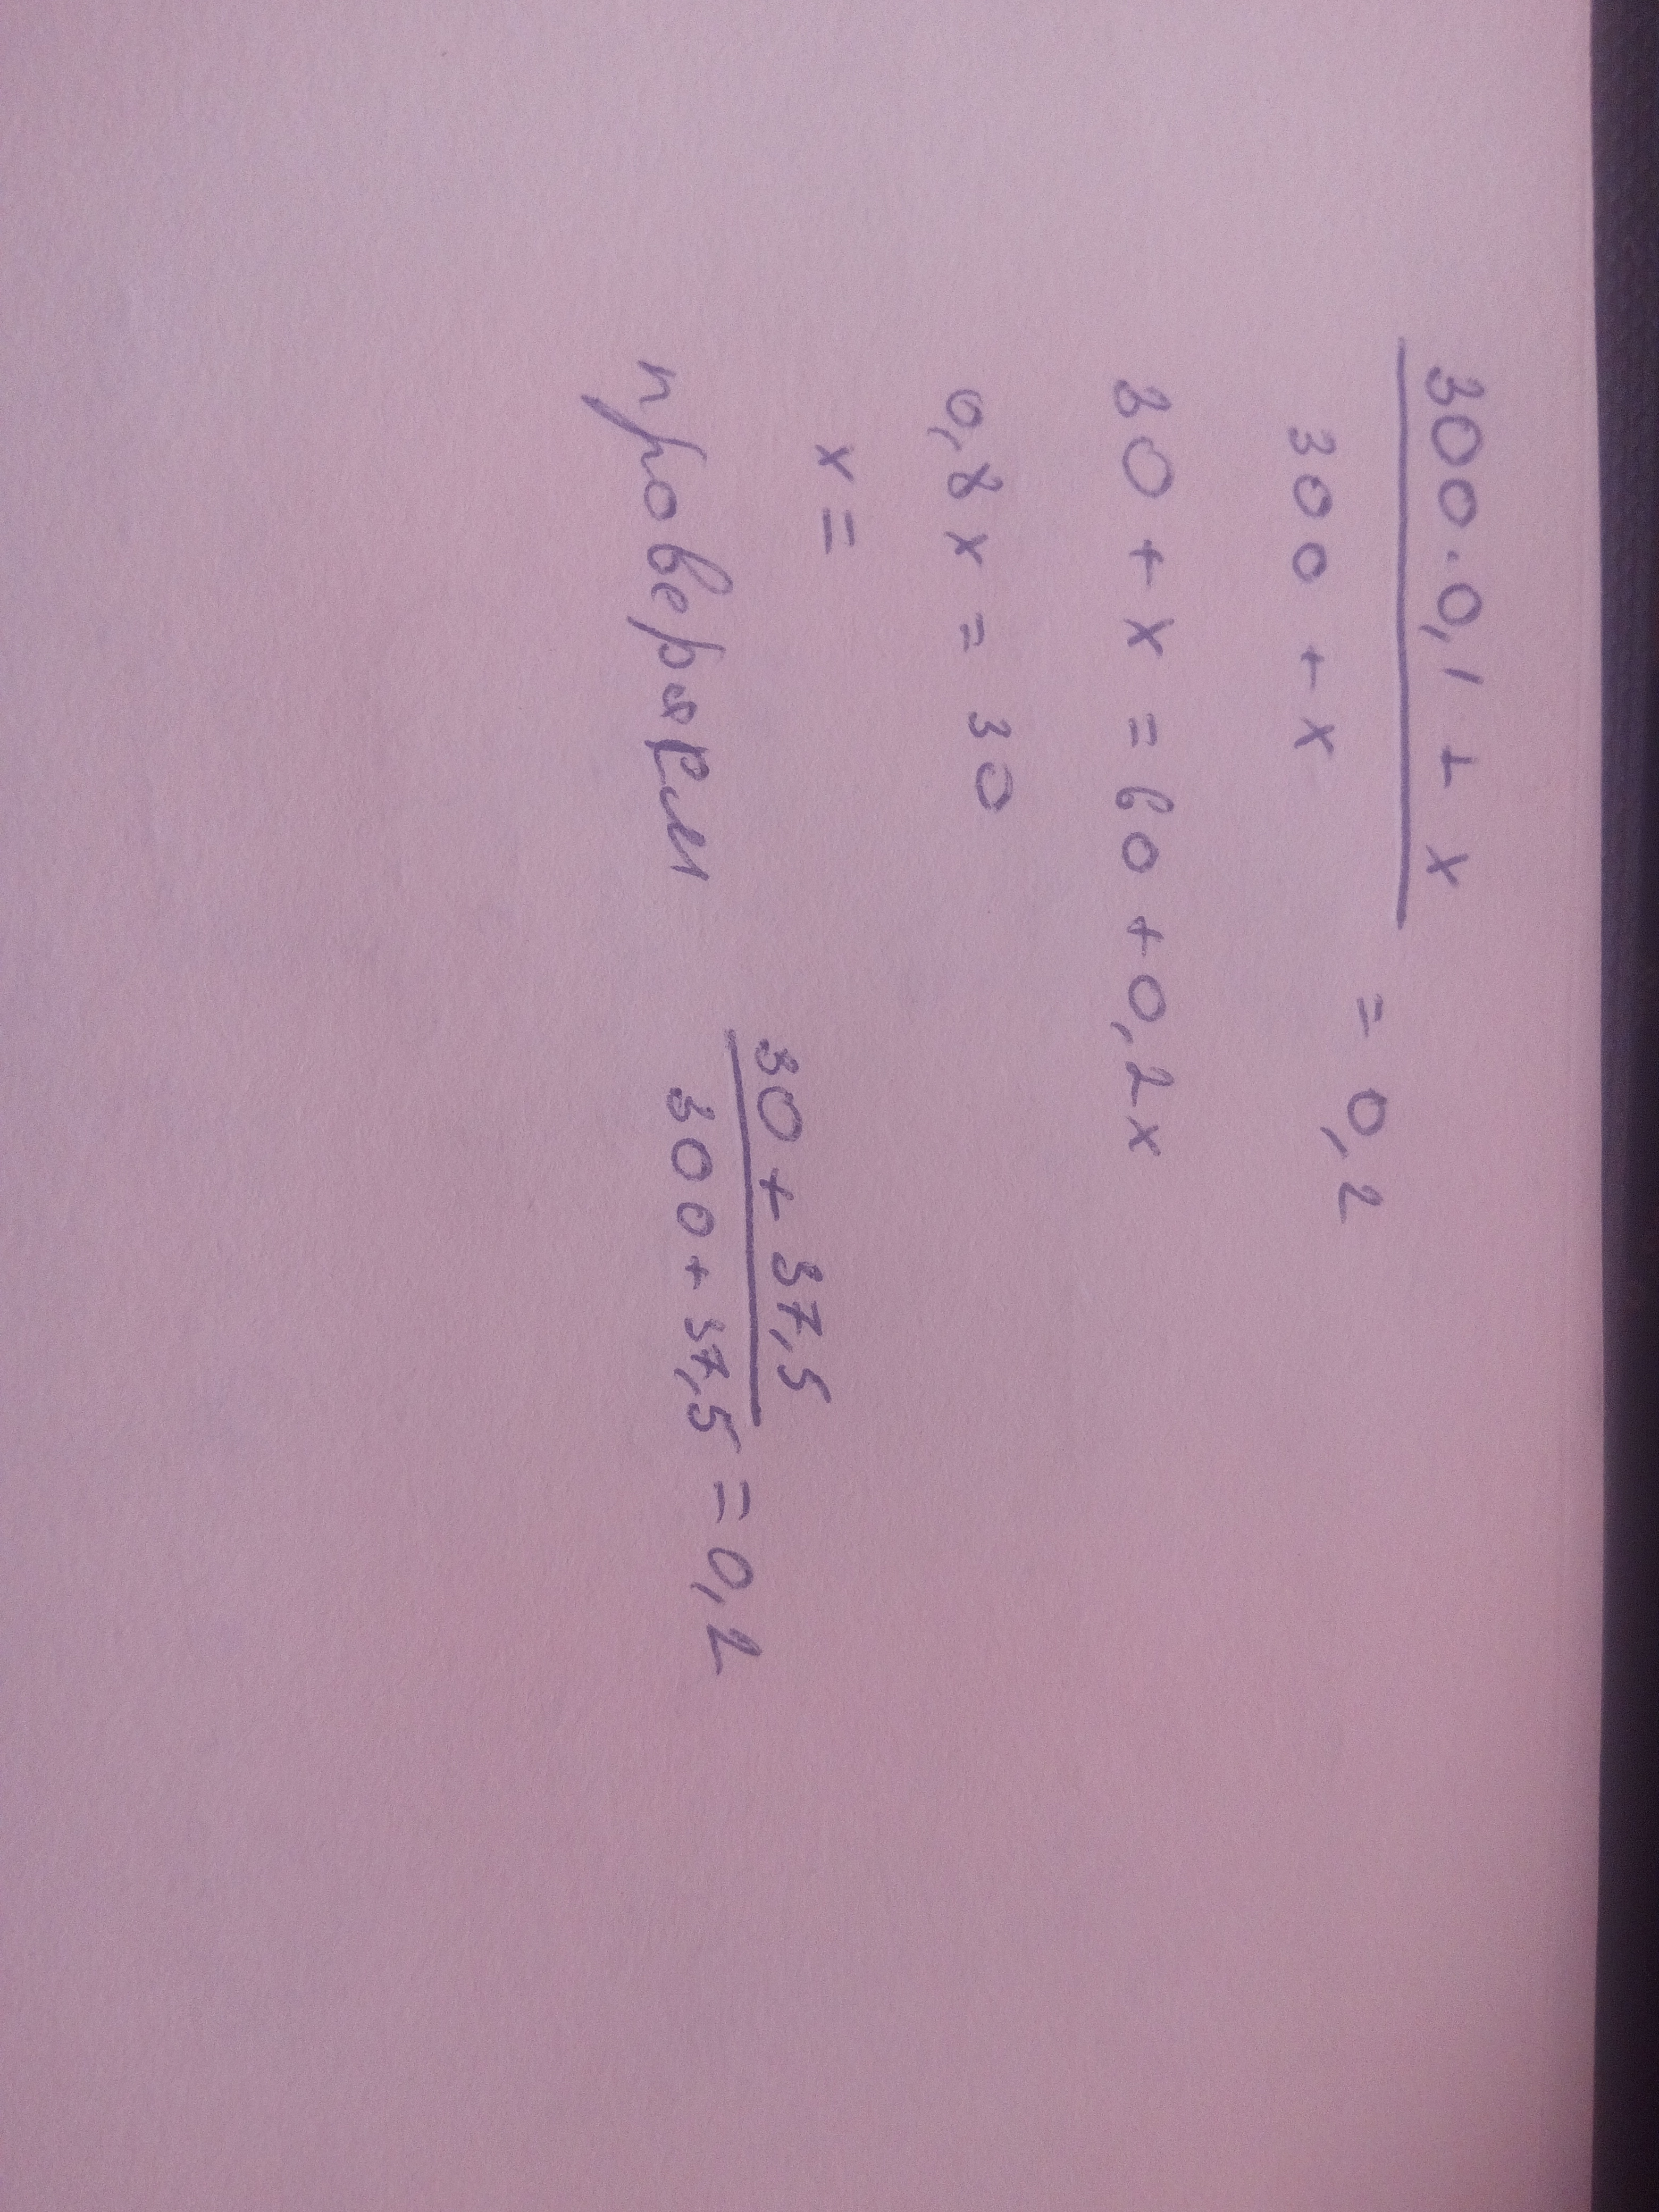 300·0,1 + x
300 + x
= 0,2
30 + x = 60 + 0,2x
0,8x = 30
x =
проверяем
30 + 37,5
300 + 37,5 = 0,2